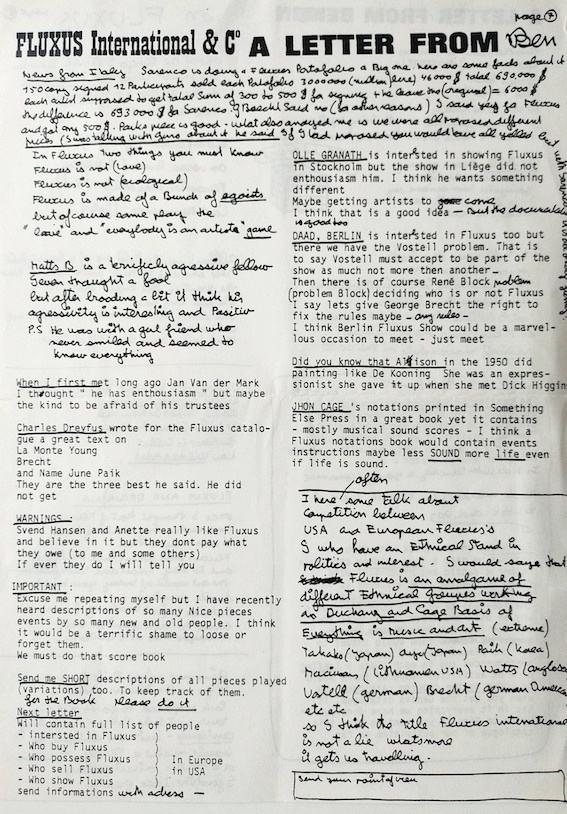 page 7
FLUXUS International & Co A LETTER FROM Ben
News from Italy Sarenco is doing a Fluxus Portofolio a Big one. here are some facts about it
150 copy signed 12 Participants sold each Portofolio 3000000 (million lire) 4600 $ total 690.000 $
each artist supposed to get total sum of 300 to 500 $ for signing + the leave (original) = 6000 $
the difference is 693.000 $ for Sarenco G Brecht said no (for other reasons) I said yes for Fluxus
and got my 500 $. Paiks piece is good - what also annoyed me is we were all proposed different
prices (I was talking with Gino about it he said If I had proposed you would have all yelled but
In Fluxus two things you must know
Fluxus is not (love)
Fluxus is not (ecological)
Fluxus is made of a Bunch of egoists
but of course some play the
"love" and "everybody is an artiste" game
Matts B is a terrificly agressive fellow
I even thought a fool
but after brooding a bit I think his
agressivity is interesting and Positiv
P.S He was with a girl friend who
never smiled and seemed to
know everything
When I first met long ago Jan Van der Mark
I thought " he has enthousiasm " but maybe
the kind to be afraid of his trustees
Charles Dreyfus wrote for the Fluxus catalo-
gue a great text on
La Monte Young
Brecht
and Name June Paik
They are the three best he said. He did
not get
WARNINGS
Svend Hansen and Anette really like Fluxus
and believe in it but they dont pay what
they owe (to me and some others)
If ever they do I will tell you
IMPORTANT :
Excuse me repeating myself but I have recently
heard descriptions of so many Nice pieces
events by so many new and old people. I think
it would be a terrific shame to loose or
forget them.
We must do that score book
Send me SHORT descriptions of all pieces played
(variations) too. To keep track of them.
for the Book please do it
Next letter
Will contain full list of people
- intersted in Fluxus
- Who buy Fluxus
- Who possess Fluxus ) In Europe
- Who sell Fluxus ) in USA
- Who show Fluxus
send informations with adress —
OLLE GRANATH is intersted in showing Fluxus
in Stockholm but the show in Liège did not
enthousiasm him. I think he wants something
different
Maybe getting artists to come
I think that is a good idea — But the documentation
is good too
DAAD, BERLIN is intersted in Fluxus too but
there we have the Vostell problem. That is
to say Vostell must accept to be part of the
show as much not more then another —
Then there is of course René Block problem
(problem Block) deciding who is or not Fluxus
I say lets give George Brecht the right to
fix the rules maybe - any rules -
I think Berlin Fluxus Show could be a marvel-
lous occasion to meet - just meet
Did you know that Allison in the 1950 did
painting like De Kooning She was an expres-
sionist she gave it up when she met Dick Higgin
JHON CAGE 's notations printed in Something
Else Press in a great book yet it contains
- mostly musical sound scores - I think a
Fluxus notations book would contain events
instructions maybe less SOUND more life even
if life is sound.
I here often some talk about
Competition between
USA and European Fluxus's
I who have an Ethnical stand in
politics and interest. I would say that
Fluxus is an amalgame of
different Ethnical groupes working
on Duchamp and Cage Basis of
Everything is music and art (extreme)
Takako (Japan) ayo (Japan) Paik (Korea)
Maciunas (Lithuanien USA) Watts (anglosa
Vostell (german) Brecht (german American
etc etc
so I think the title Fluxus international
is not a lie whatsmore
it gets us travelling.
Send your point of view